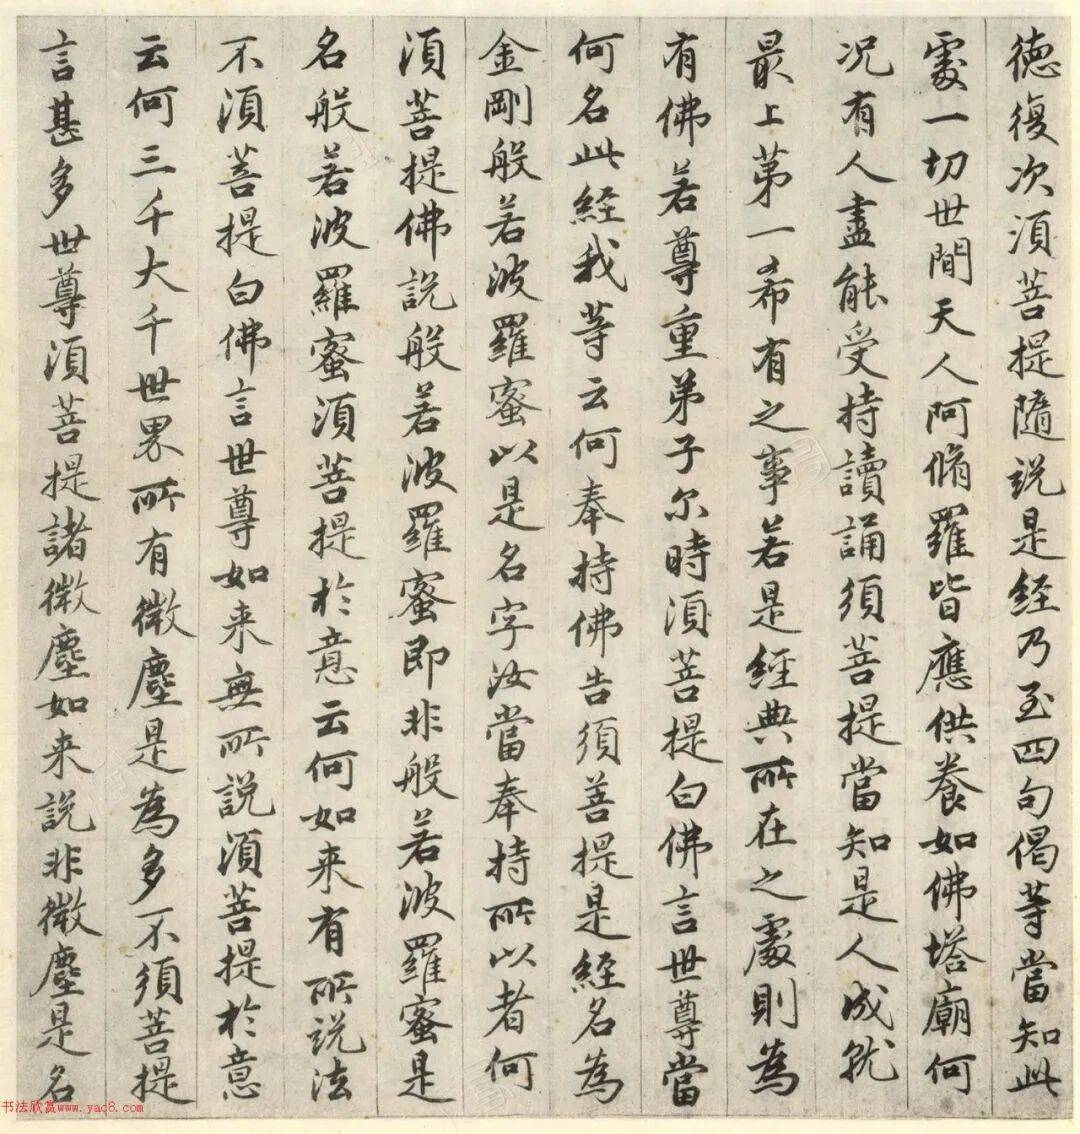 德復次湏菩提隨說是経乃至四句偈等當知此
處一切世間天人阿脩羅皆應供養如佛塔廟何
况有人盡能受持讀誦須菩提當知是人成就
最上苐一希有之事若是經典所在之處則為
有佛若尊重弟子尔時湏菩提白佛言世尊當
何名此経我等云何奉持佛告須菩提是経名為
金剛般若波羅蜜以是名字汝當奉持所以者何
湏菩提佛説般若波羅蜜即非般若波羅蜜是
名般若波羅蜜湏菩提扵意云何如来有所説法
不湏菩提白佛言世尊如来無所説湏菩提扵意
云何三千大千世界所有微塵是為多不須菩提
言甚多世尊湏菩提諸微塵如来説非微塵是名
书法欣赏www.yac8.com